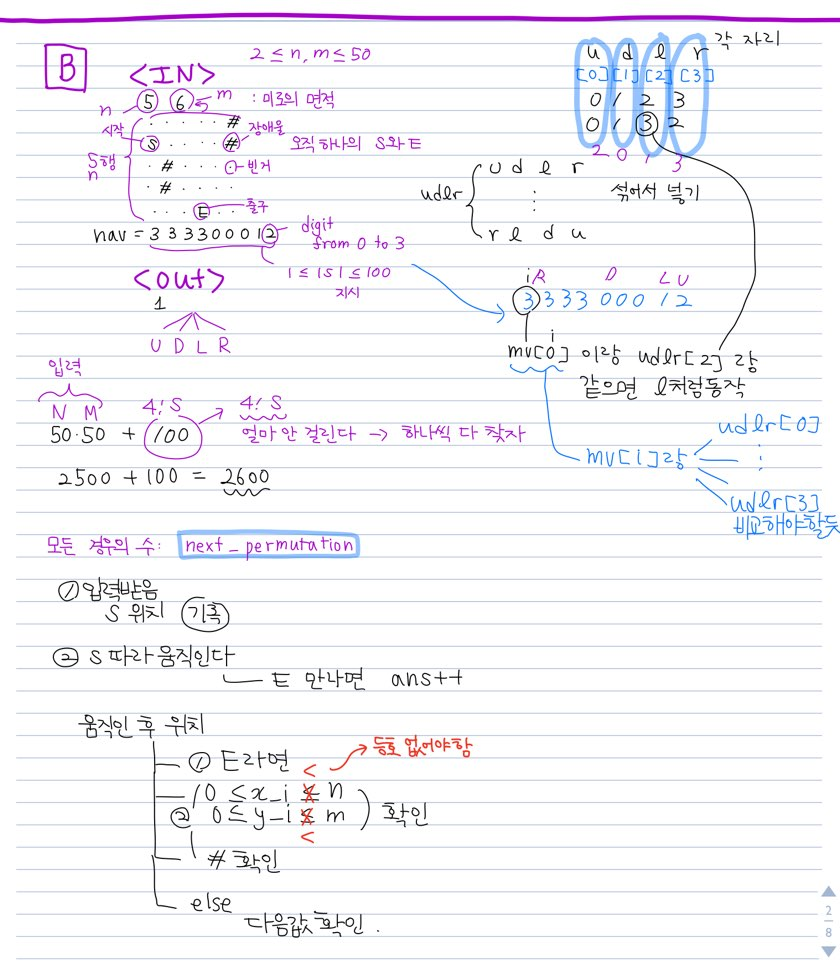 B
<IN>
2 ≤ n, m ≤ 50
n 5 6 ← m : 미로의 면적
. . . . . #
시작 장애물
S . . . . # 오직 하나의 S와 E
5행 n
. # . . . . 빈거
. # . . . .
. . . E . . 출구
nav = 333300012 digit from 0 to 3
1 ≤ |s| ≤ 100
지시
<out>
1
U D L R
입력
N M 4! S 4! S
50·50 + 100 얼마 안 걸린다 → 하나씩 다 찾자
2500 + 100 = 2600
u d l r 각 자리
[0] [1] [2] [3]
0 1 2 3
0 1 3 2
2 0 1 3
섞어서 넣기
udlr
u d l r
⋮
r l d u
i R D L U
3 3 3 3 0 0 0 1 2
i
mv[0] 이랑 udlr[2] 랑
같으면 l처럼동작
mv[1]랑
udlr[0]
⋮
udlr[3]
비교해야할듯
모든 경우의 수: next_permutation
① 입력받음
S 위치 기록
② S 따라 움직인다
E 만나면 ans++
움직인 후 위치
① E라면
< → 등호 없어야함
② ( 0 ≤ x_i ≤ n
0 ≤ y_i ≤ m ) 확인
<
# 확인
else
다음값 확인.
2
8